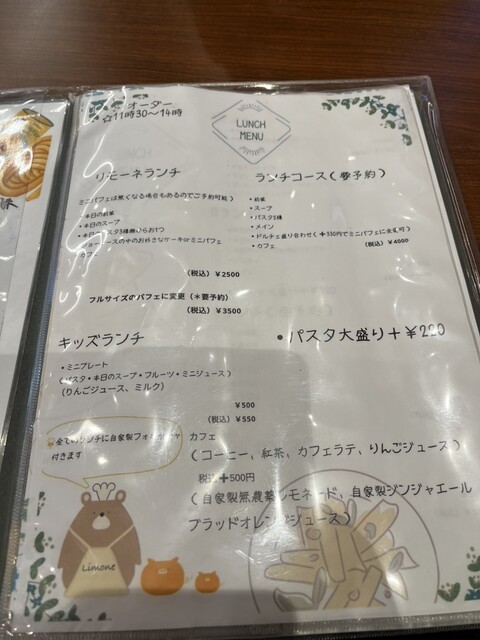 オーダー
☆11時30〜14時
LUNCH
MENU
リモーネランチ
ミニパフェは無くなる場合もあるのでご予約可能)
・本日の前菜
・本日のスープ
・本日のパスタ3種類からお1つ
ショーケースの中のお好きなケーキorミニパフェ
カフェ
(税込)¥2500
フルサイズのパフェに変更(＊要予約)
(税込)¥3500
ランチコース(要予約)
・前菜
・スープ
・パスタ3種
・メイン
・ドルチェ盛り合わせ(+330円でミニパフェに変更可)
・カフェ
(税込)¥4000
キッズランチ
・ミニプレート
(パスタ・本日のスープ・フルーツ・ミニジュース)
(りんごジュース、ミルク)
¥500
(税込)¥550
・パスタ大盛り+¥220
全てのランチに自家製フォカッチャ
付きます
カフェ
(コーヒー、紅茶、カフェラテ、りんごジュース)
税込+500円
(自家製無農薬レモネード、自家製ジンジャエール
ブラッドオレンジジュース)
Limone